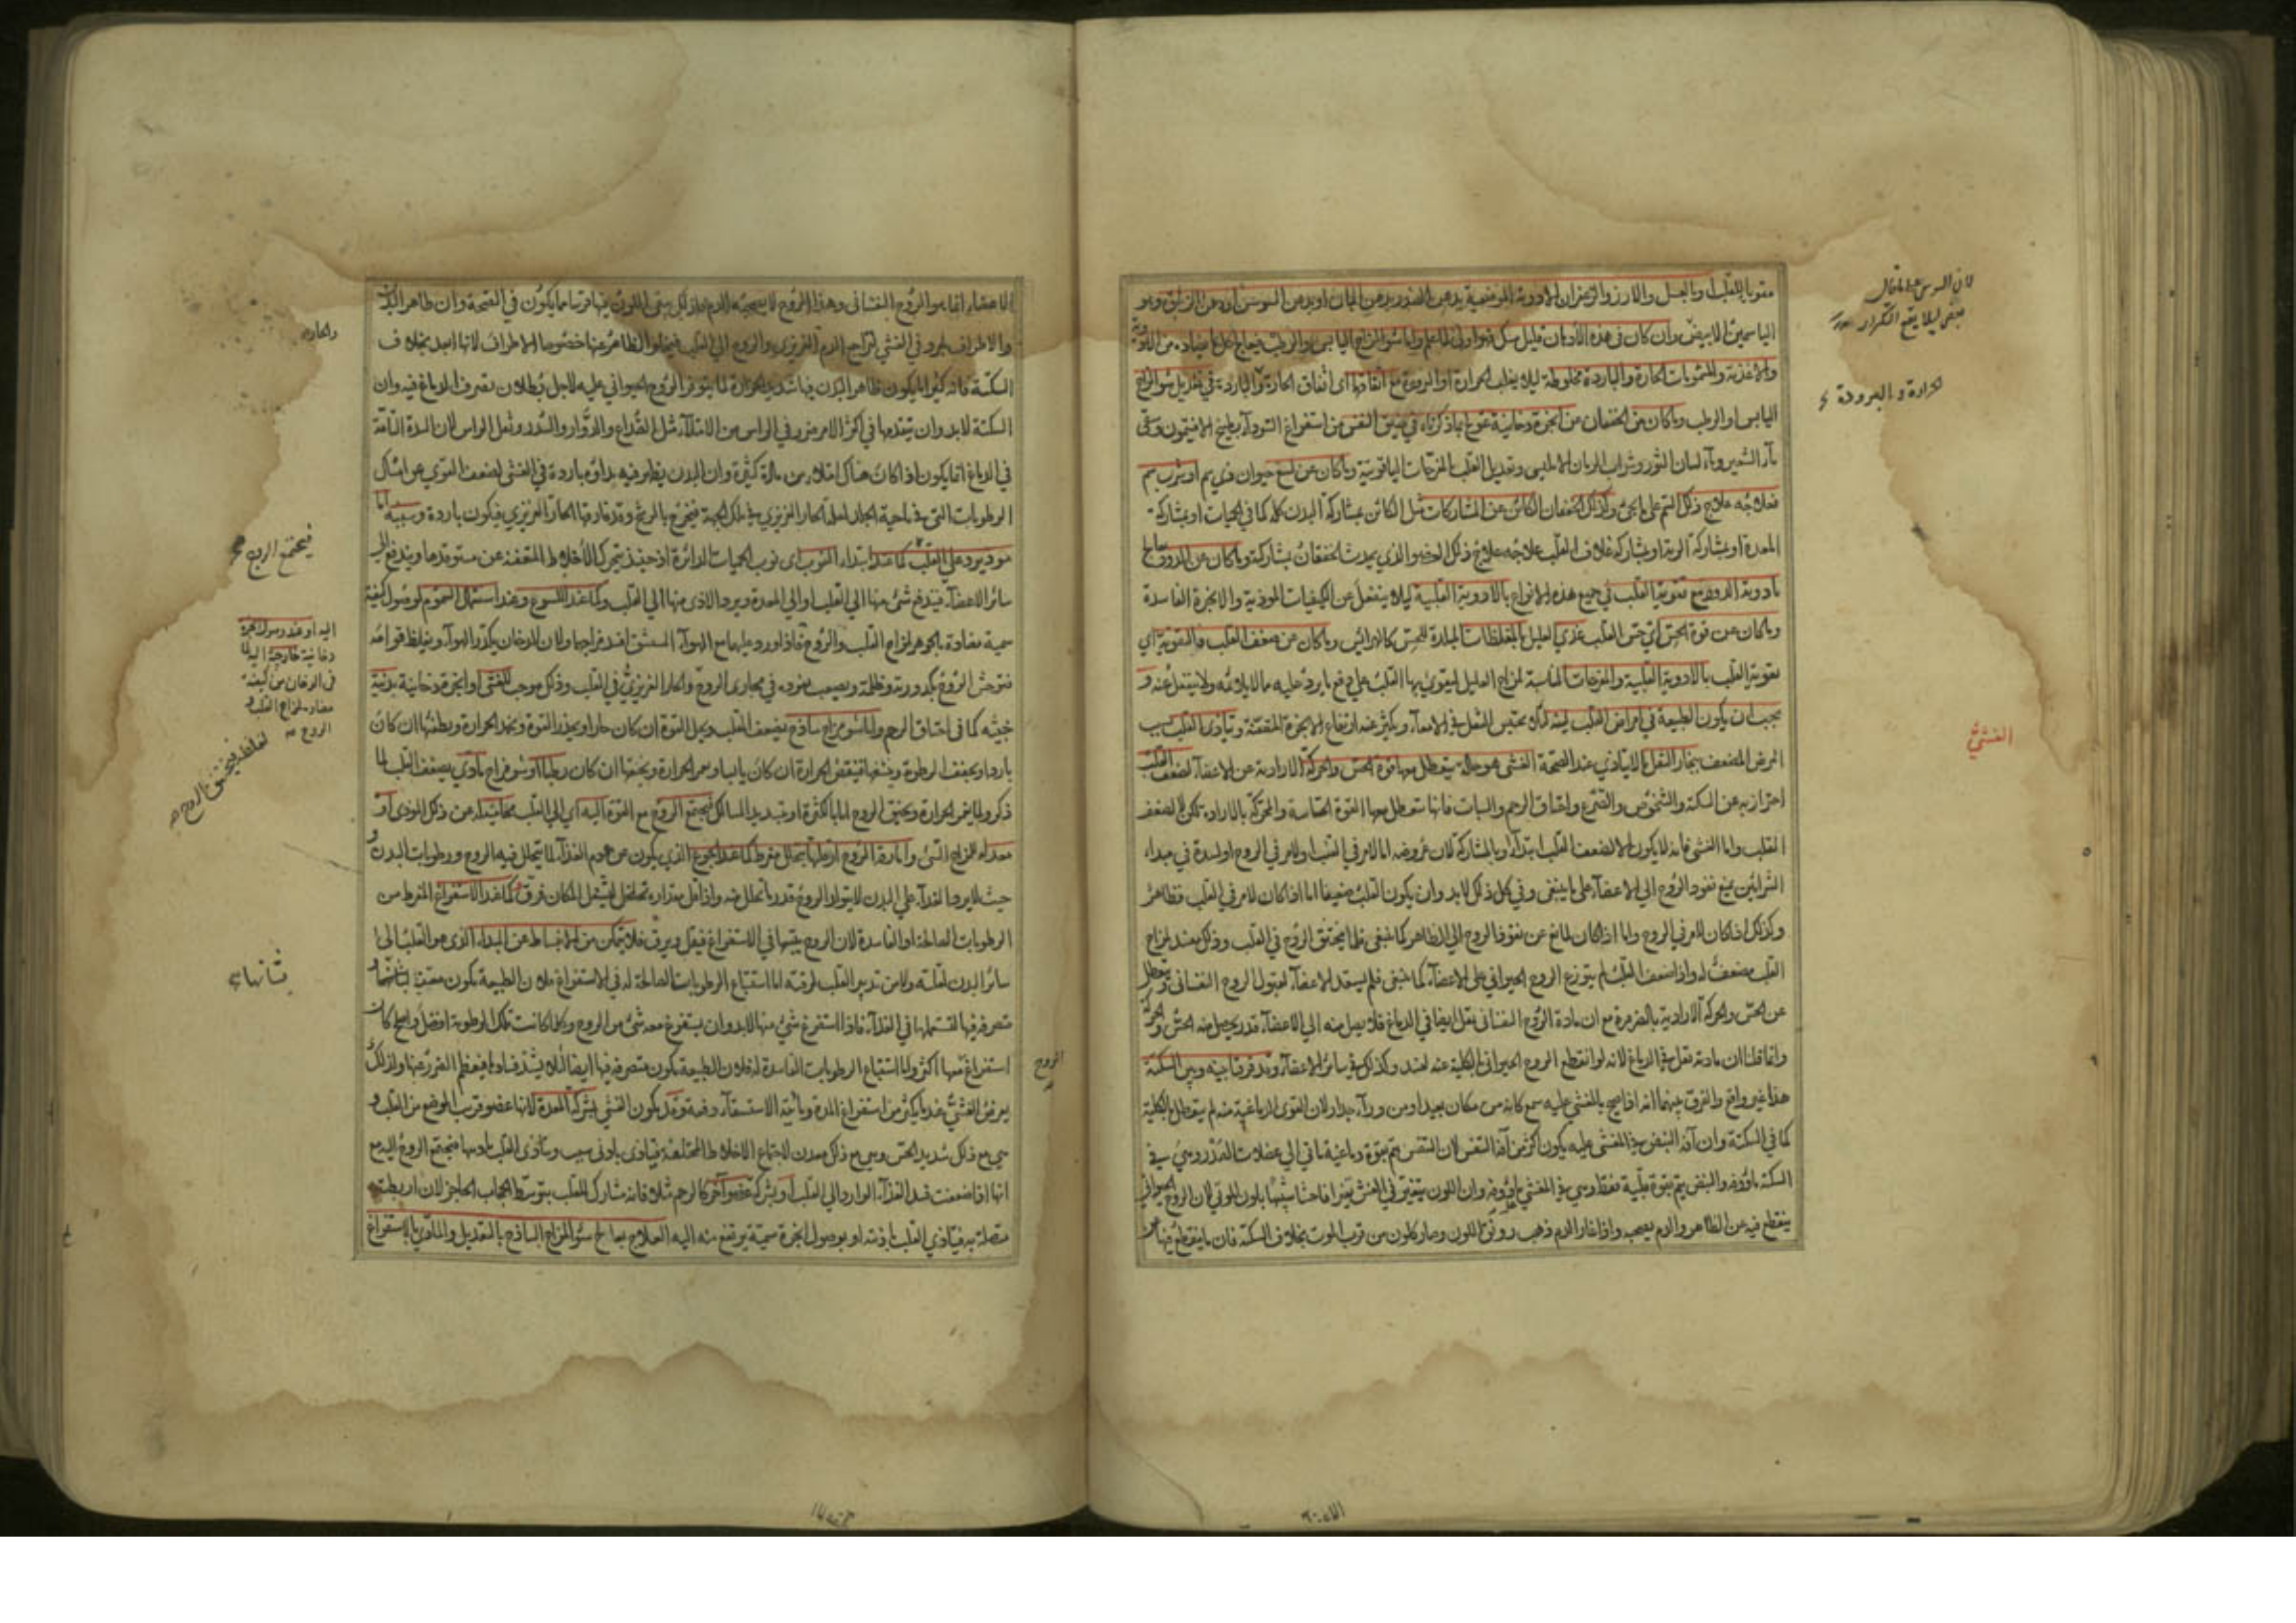 مقويا للقلب او بالعسل والارز والزعفران
الياسمين الابيض وان كان في هذه الادهان قليل مسك فهو اولى
والاغذية والمشمومات الحارة والباردة مخلوطة ليلا يغلب الحرارة او البرودة مع اتفاقها اى اتفاق الحارة والباردة في تعديل سوء المزاج
اليابس او الرطب وما كان من الخفقان من ابخرة دخانية عولج بما ذكرناه في ضيق النفس من استفراغ السوداء بطبيخ الافتيمون وسقى
ماء الشعير وماء لسان الثور وشراب وتعديل القلب بالمفرحات الياقوتية وما كان عن لسع حيوان ذي سم او شرب سم
فعلاجه علاج ذلك السم على ما يجئ وكذلك الخفقان الكائن عن المشاركات مثل الكائن بمشاركة البدن كله كما في الحميات او بمشاركة
المعدة او بمشاركة الرية او بمشاركة غلاف القلب علاجه علاج ذلك العضو الذي يحدث الخفقان بمشاركته وما كان عن الدود يعالج
بادوية الدود مع تقوية القلب في جميع هذه الانواع بالادوية القلبية كيلا ينفعل عن الكيفيات الموذية والابخرة الفاسدة
وما كان عن قوة الحس اي حس القلب غذي العليل بالمغلظات المبلدة للحس كالهرائس وما كان عن ضعف القلب فالتقوية اي
تقوية القلب بالادوية القلبية والمفرحات المناسبة لمزاج العليل ليقوي بها القلب على دفع ما يرد عليه مما لا يلائمه ولا ينفعل عنه و
يجب ان يكون الطبيعة في امراض القلب لينة لئلا يحتبس الثفل في الامعاء ويكثر عنه ارتفاع الابخرة المتعفنة ويتأذى القلب بسبب
المرض المضعف ببخار الثفل ما لا يتأذي عند الصحة الغشى هو حالة يتعطل معها قوة الحس والحركة الارادية عن الاعضاء لضعف القلب
احترز به عن السكتة والشخوص والصرع واختناق الرحم والسبات فانها يتعطل معها القوة الحساسة والمحركة بالارادة لكن لا لضعف
القلب واما الغشى فانه لا يكون الا لضعف القلب ابتداء او بالمشاركة لان عروضه اما لامر في القلب او لامر في الروح او لسدة في مبداء
الشرايين يمنع نفوذ الروح الى الاعضاء على ما ينبغى وفي كل ذلك لابد وان يكون القلب ضعيفا اما اذا كان لامر في القلب فظاهر
وكذلك اذا كان لامر في الروح واما اذا كان لمانع عن نفوذ الروح الى الظاهر كما ينبغى فلما يختنق الروح في القلب وذلك مفسد لمزاج
القلب مضعف له واذا ضعف القلب لم يتوزع الروح الحيواني على الاعضاء كما ينبغى فلم يستعد الاعضاء لقبول الروح النفساني ويتعطل
عن الحس والحركة الارادية بالضرورة مع ان مادة الروح النفساني تقل ايضا في الدماغ فلا يصل منه الي الاعضاء قدر يحصل منه الحس والحركة
وانما قلنا ان مادته تقل في الدماغ لانه لو انقطع الروح الحيواني بالكلية عنه لفسد وكذلك في سائر الاعضاء وقد فرق بينه وبين السكتة
هذا غير واقع والفرق بينهما انه اذا صيح بالمغشي عليه سمع كانه من مكان بعيد او من وراء جدار لان القوى الدماغية منه لم يتعطل بالكلية
كما في السكتة وان آفة النبض في المغشى عليه يكون اكثر من آفة التنفس لان التنفس يتم بقوة دماغية تاتي الي عضلات الصدر وهي في
السكتة ماؤفة والنبض يتم بقوة قلبية فقط وهي في الغشي ماؤوفة وان اللون يتغير في الغشى تغيرا فاحشا شبيها بلون الموتى لان الروح الحيواني
ينقطع فيه عن الظاهر والدم يصحبه واذا غار الدم ذهب رونق اللون وصار كلون من قرب الموت بخلاف السكتة فان ما ينقطع فيها عن
لان السوسن
معنى ليلا يقع التكرار
الحرارة والبرودة
الغشي
الاعضاء انما هو الروح النفساني وهذا الروح لا يصحبه الدم فلذلك يبقى اللون فيها قريبا مما يكون في الصحة وان ظاهر البدن
والاطراف يبرد في الغشى لتراجع الدم الغريزي والروح الى القلب فيخلو الظاهر عنها خصوصا الاطراف لانها ابعد بخلاف
السكتة فانه كثيرا ما يكون ظاهر البدن فيها شديد الحرارة لما يتوفر الروح الحيواني عليه لاجل بطلان تصرف الدماغ فيه وان
السكتة لابد وان يتقدمها في اكثر الامر ضرر في الراس من الامتلاء مثل الصداع والدوار والسدر وثقل الراس لان السدة التامة
في الدماغ انما يكون اذا كان هناك امتلاء من مادة كثيرة وان البدن يظهر فيه نداوة باردة في الغشى لضعف القوي عن امساك
الرطوبات التي في ناحية الجلد لميل الحار الغريزي في تلك الجهة فيخرج بالرشح وقد فارقها الحار الغريزي فيكون باردة وسببه اما
موذ يرد على القلب كما عند ابتداء النوب اى نوب الحميات الدائرة اذ حينئذ يتحرك الاخلاط المتعفنة عن مستوقدها ويندفع الى
سائر الاعضاء فيندفع شئ منها الي القلب او الي المعدة ويرد الاذى منها الي القلب وكما عند اللسوع وعند استعمال السموم لوصول كيفية
سمية مضادة بالجوهر لمزاج القلب والروح فاذا ورد عليهما مع الهواء المستنشق افسد مزاجها ولان الدخان يكدر الهواء ويغلظ قوامه
فتوحش الروح بكدورته وظلمته ويصعب نفوذه في مجاري الروح والحار الغريزي في القلب وذلك موجب للغشى او ابخرة دخانية بدنية
خبيثة كما في اختناق الرحم واما سوء مزاج ساذج يضعف القلب ويحل القوة ان كان حارا ويخدر القوة ويخمد الحرارة ويطفئها ان كان
باردا ويجفف الرطوبة وينشفها فينقص الحرارة ان كان يابسا ويغمر الحرارة ويخنقها ان كان رطبا او سوء مزاج مادي يضعف القلب لما
ذكر ولما يغمر الحرارة ويختنق الروح اما بالكثرة او بتسديد المسالك فيجتمع الروح مع القوة اليه اي الى القلب محاميا له عن ذلك الموذي او
معدلا للمزاج السيئ واما رقة الروح او قلتها بتحلل مفرط كما عند الجوع الذي يكون عن عدم الغذاء لما يتحلل فيه الروح ورطوبات البدن و
حيث لا يرد الغذاء علي البدن لا يتولد الروح قدر ما تحلل منه واذا قل مقداره تخلخل ليشغل المكان فرق كما عند الاستفراغ المفرط من
الرطوبات الصالحة او الفاسدة لان الروح يتبعها في الاستفراغ فيقل ويرق فلا يتمكن من الانبساط عن المبداء الذي هو القلب الى
سائر البدن لقلته ولا من تدبير القلب لرقته اما استتباع الرطوبات الصالحة له في الاستفراغ فلان الطبيعة يكون معتنية بشانها و
متصرفة فيها لتستعملها في الغذاء فاذا استفرغ شئ منها لابد وان يستفرغ معه شئ من الروح وكلما كانت تلك الرطوبة افضل واصلح كان
استفراغ معها اكثر واما استتباع الرطوبات الفاسدة له فلان الطبيعة يكون متصرفة فيها ايضا لئلا يشتد فسادها فيعظم الضرر عنها ولذلك
يعرض الغشي عند ما يكثر من استفراغ المدة ومائية الاستسقاء دفعة وقد يكون الغشي بشركة المعدة لانها عضو قريب الموضع من القلب و
هي مع ذلك شديد الحس وهي مع ذلك معدن لاجتماع الاخلاط المختلفة فيتأذى بادنى سبب ويتأذى القلب باذيها فيجتمع الروح اليه مع
انها اذا ضعفت فسد الغذاء الوارد الي القلب او بشركة عضو آخر كالرحم مثلا فانه مشارك للقلب بتوسط الحجاب الحاجز لان اربطته
متصلة به فيتأذي القلب باذيته او بوصول ابخرة سمية يرتفع منه اليه العلاج يعالج سوء المزاج الساذج بالتعديل والمادي بالاستفراغ
والحارة
فيجتمع الروح
اليه او عند وصول ابخرة
دخانية خارجة اليه لما
في الدخان من كيفية
مضادة لمزاج القلب و
الروح
بشانها
الروح